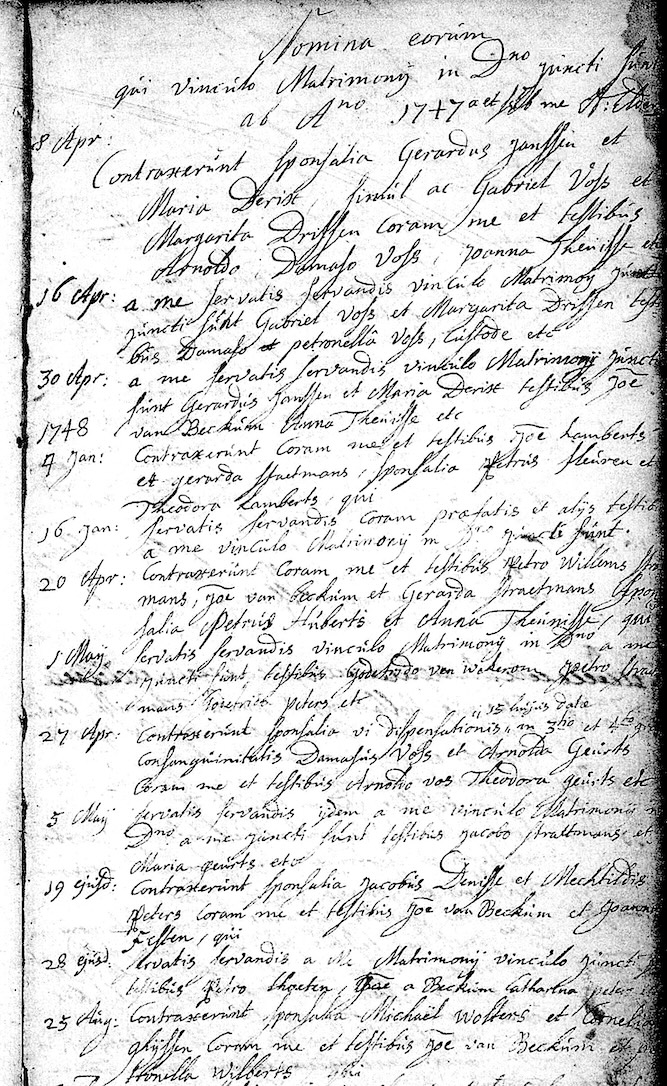 Nomina eorum
qui vinculo Matrimonij in Dno juncti sunt
ab Ano 1747 a et sub me
8 Apr:
Contraxerunt sponsalia Gerardus Janssen et
Maria Derix, simul ac Gabriel Voss et
Margarita Drissen coram me et testibus
Arnoldo, Damaso Voss, Joanna Theunisse etc
16 Apr: a me servatis servandis vinculo Matrimonij
juncti sunt Gabriel Voss et Margarita Drissen testi
bus Damaso et petronella Voss, Custode etc
30 Apr: a me servatis servandis vinculo Matrimonij juncti
sunt Gerardus Janssen et Maria Derix testibus, Joe
1748 van Beckum Anna Theunisse etc
4 Jan: Contraxerunt Coram me et testibus Joe Lamberts
et gerarda straetmans, sponsalia Petrus fleuren et
Theodora Lamberts, qui
16 Jan: servatis servandis coram praefatis et alijs testibus
a me vinculo Matrimonij in Dno juncti sunt.
20 Apr: Contraxerunt Coram me et testibus Petro Willems
mans, Joe van beckum et Gerarda straetmans spon
salia Petrus Huberts et Anna Theunisse, qui
1 Maij servatis servandis vinculo Matrimonij in Dno a me
juncti sunt, testibus van wakerom Petro
mans peters etc
27 Apr: Contraxerunt sponsalia vi dispensationis, 15 hujus datae in 3tio et 4to
Consanguinitatis Damasus Voss et Arnolda Geurts
Coram me et testibus Arnoldo vos Theodora geurts etc
5 Maij servatis servandis ijdem a me vinculo Matrimonij in
Dno a me juncti sunt testibus jacobo straetmans et
Maria geurts etc
19 ejusd: Contraxerunt sponsalia Jacobus Denisse et Mechtildis
Peters Coram me et testibus Joe van Beckum et Joanna
Festen, qui
28 ejusd: servatis servandis a me Matrimonij vinculo juncti
testibus Petro Joe a Beckum Catharina peters
25 Aug: Contraxerunt sponsalia Michaël Wolters et Cornelia
gijssen Coram me et testibus Joe van Beckum et pe
tronella Wilberts qui